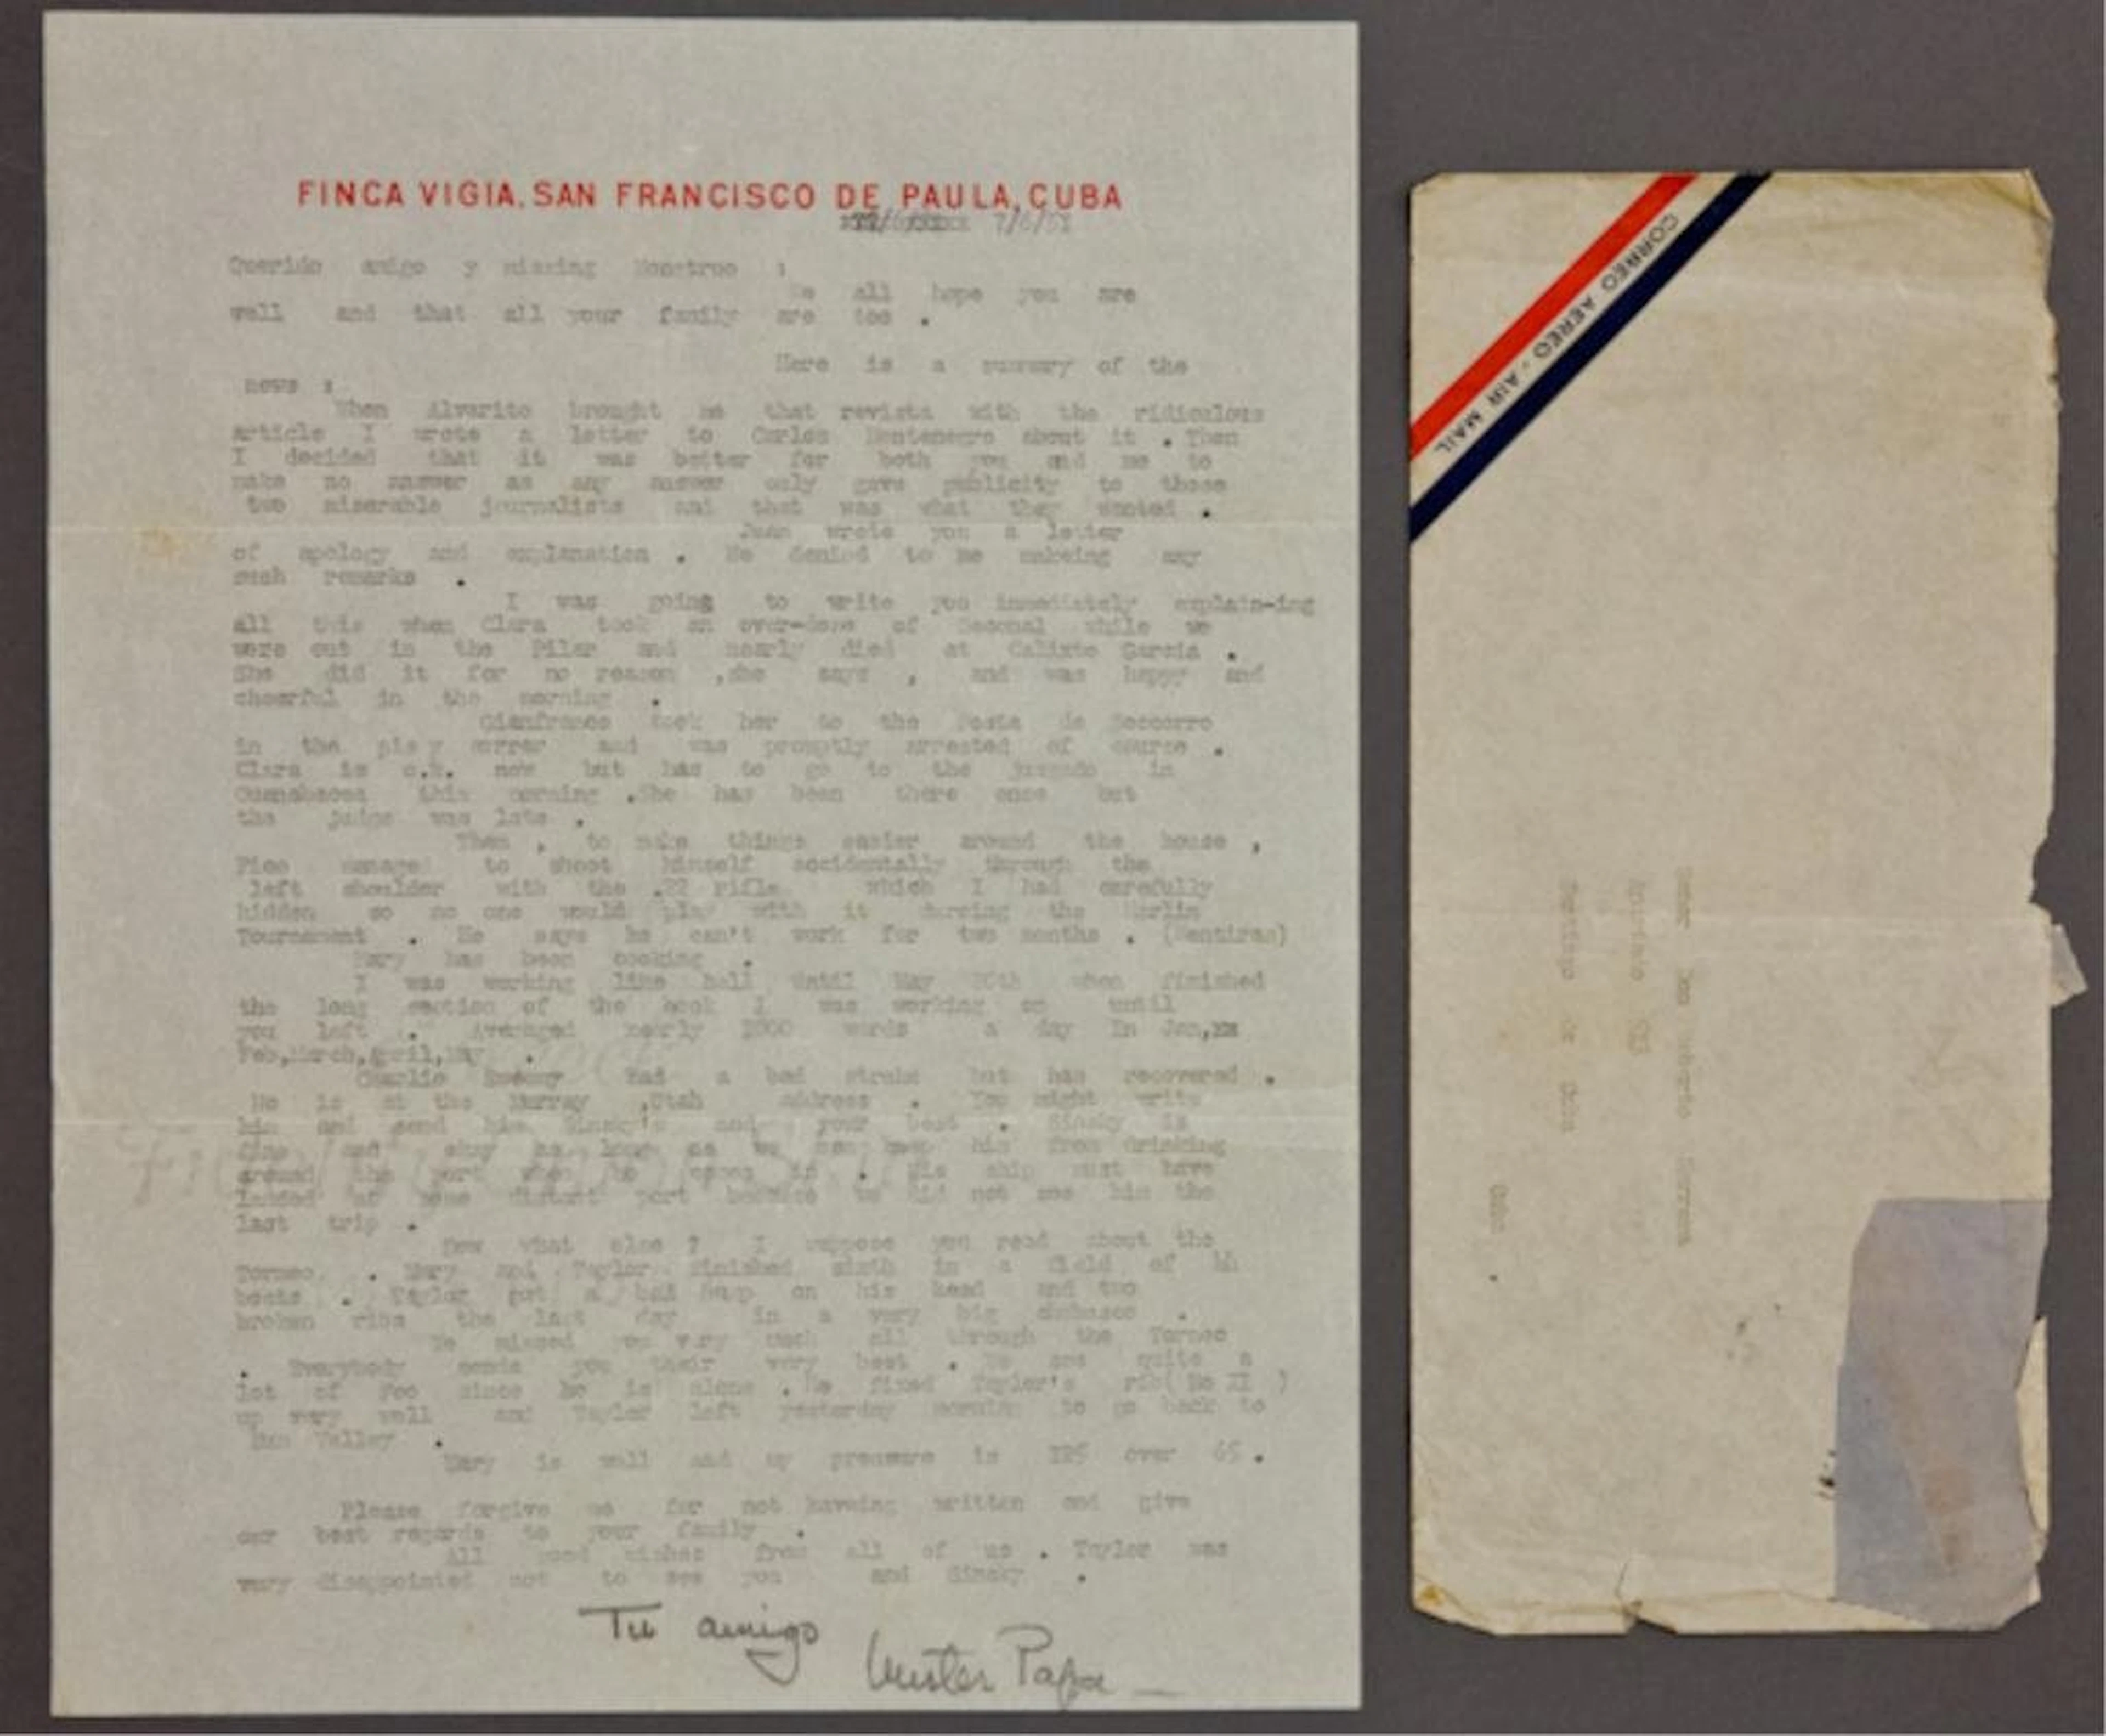 FINCA VIGIA, SAN FRANCISCO DE PAULA, CUBA
7/6/51
Querido amigo y missing Monstruo :
We all hope you are
well and that all your family are too .
Here is a summary of the
news :
When Alvarito brought me that revista with the ridiculous
article I wrote a letter to Carlos Montenegro about it . Then
I decided that it was better for both you and me to
make no answer as any answer only gave publicity to those
two miserable journalists and that was what they wanted .
Juan wrote you a letter
of apology and explanation . He denied to me makeing any
such remarks .
I was going to write you immediately explain-ing
all this when Clara took an over-dose of Seconal while we
were out in the Pilar and nearly died at Calixto Garcia .
She did it for no reason ,she says , and was happy and
cheerful in the morning .
Gianfranco took her to the Posta de Soccorro
in the pis y correr and was promptly arrested of course .
Clara is o.k. now but has to go to the juzgado in
Guanabacoa this morning .She has been there once but
the judge was late .
Then , to make things easier around the house ,
Pico managed to shoot himself accidentally through the
left shoulder with the .22 rifle which I had carefully
hidden so no one would play with it during the Marlin
Tournament . He says he can't work for two months . (Mentiras)
Mary has been cooking .
I was working like hell until May 20th when finished
the long section of the book I was working on until
you left . Averaged nearly 1000 words a day in Jan,
Feb,March,April,May .
Charlie Sweeny had a bad stroke but has recovered .
He is at the Murray ,Utah address . You might write
him and send him Sinsky's and your best . Sinsky is
fine and okay as long as we can keep him from drinking
around the port when he comes in . His ship must have
loaded at some distant port because we did not see him the
last trip .
Now what else ? I suppose you read about the
Torneo . Mary and Taylor finished sixth in a field of 44
boats . Taylor got a bad bump on his head and two
broken ribs the last day in a very big
We missed you very much all through the Torneo
. Everybody sends you their very best . We see quite a
lot of Feo since he is alone . He fixed Taylor's rib( No II )
up very well and Taylor left yesterday morning to go back to
Sun Valley .
Mary is well and my pressure is 125 over 65 .
Please forgive me for not haveing written and give
our best regards to your family .
All good wishes from all of us . Taylor was
very disappointed not to see you and Sinsky .
Tu amigo
Mister Papa
CORREO AEREO - AIR MAIL
Señor Don Roberto Herrera
Santiago de Cuba
Cuba .